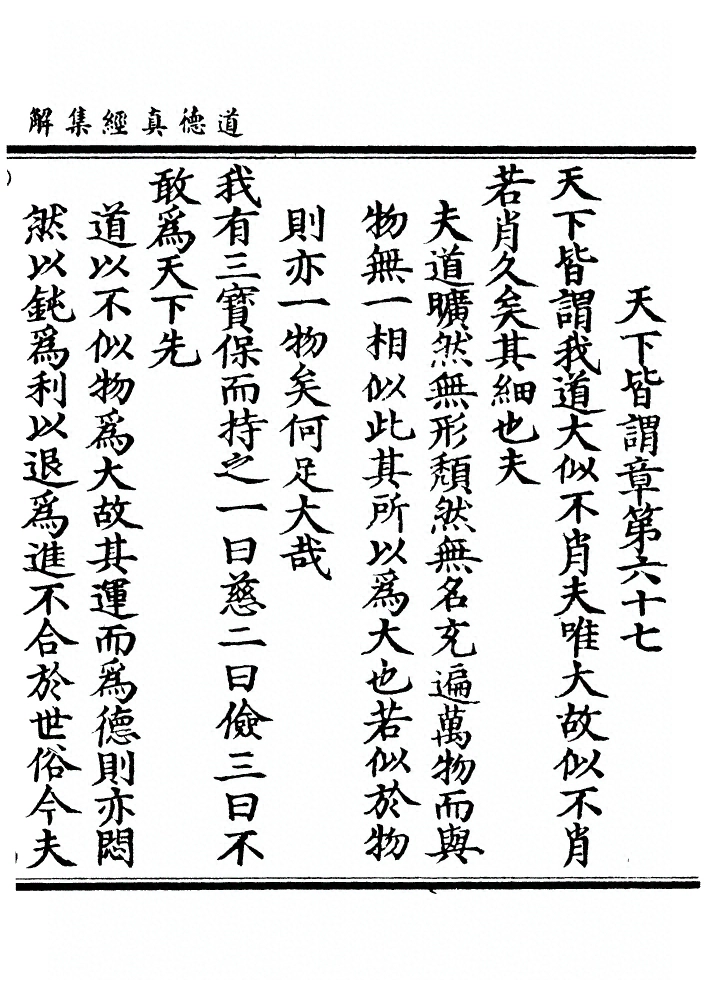 道德真經集解
天下皆謂章第六十七
天下皆謂我道大似不肖夫唯大故似不肖
若肖久矣其細也夫
夫道曠然無形頹然無名充遍萬物而與
物無一相似此其所以為大也若似於物
則亦一物矣何足大哉
我有三寶保而持之一曰慈二曰儉三曰不
敢為天下先
道以不似物為大故其運而為德則亦悶
然以鈍為利以退為進不合於世俗今夫